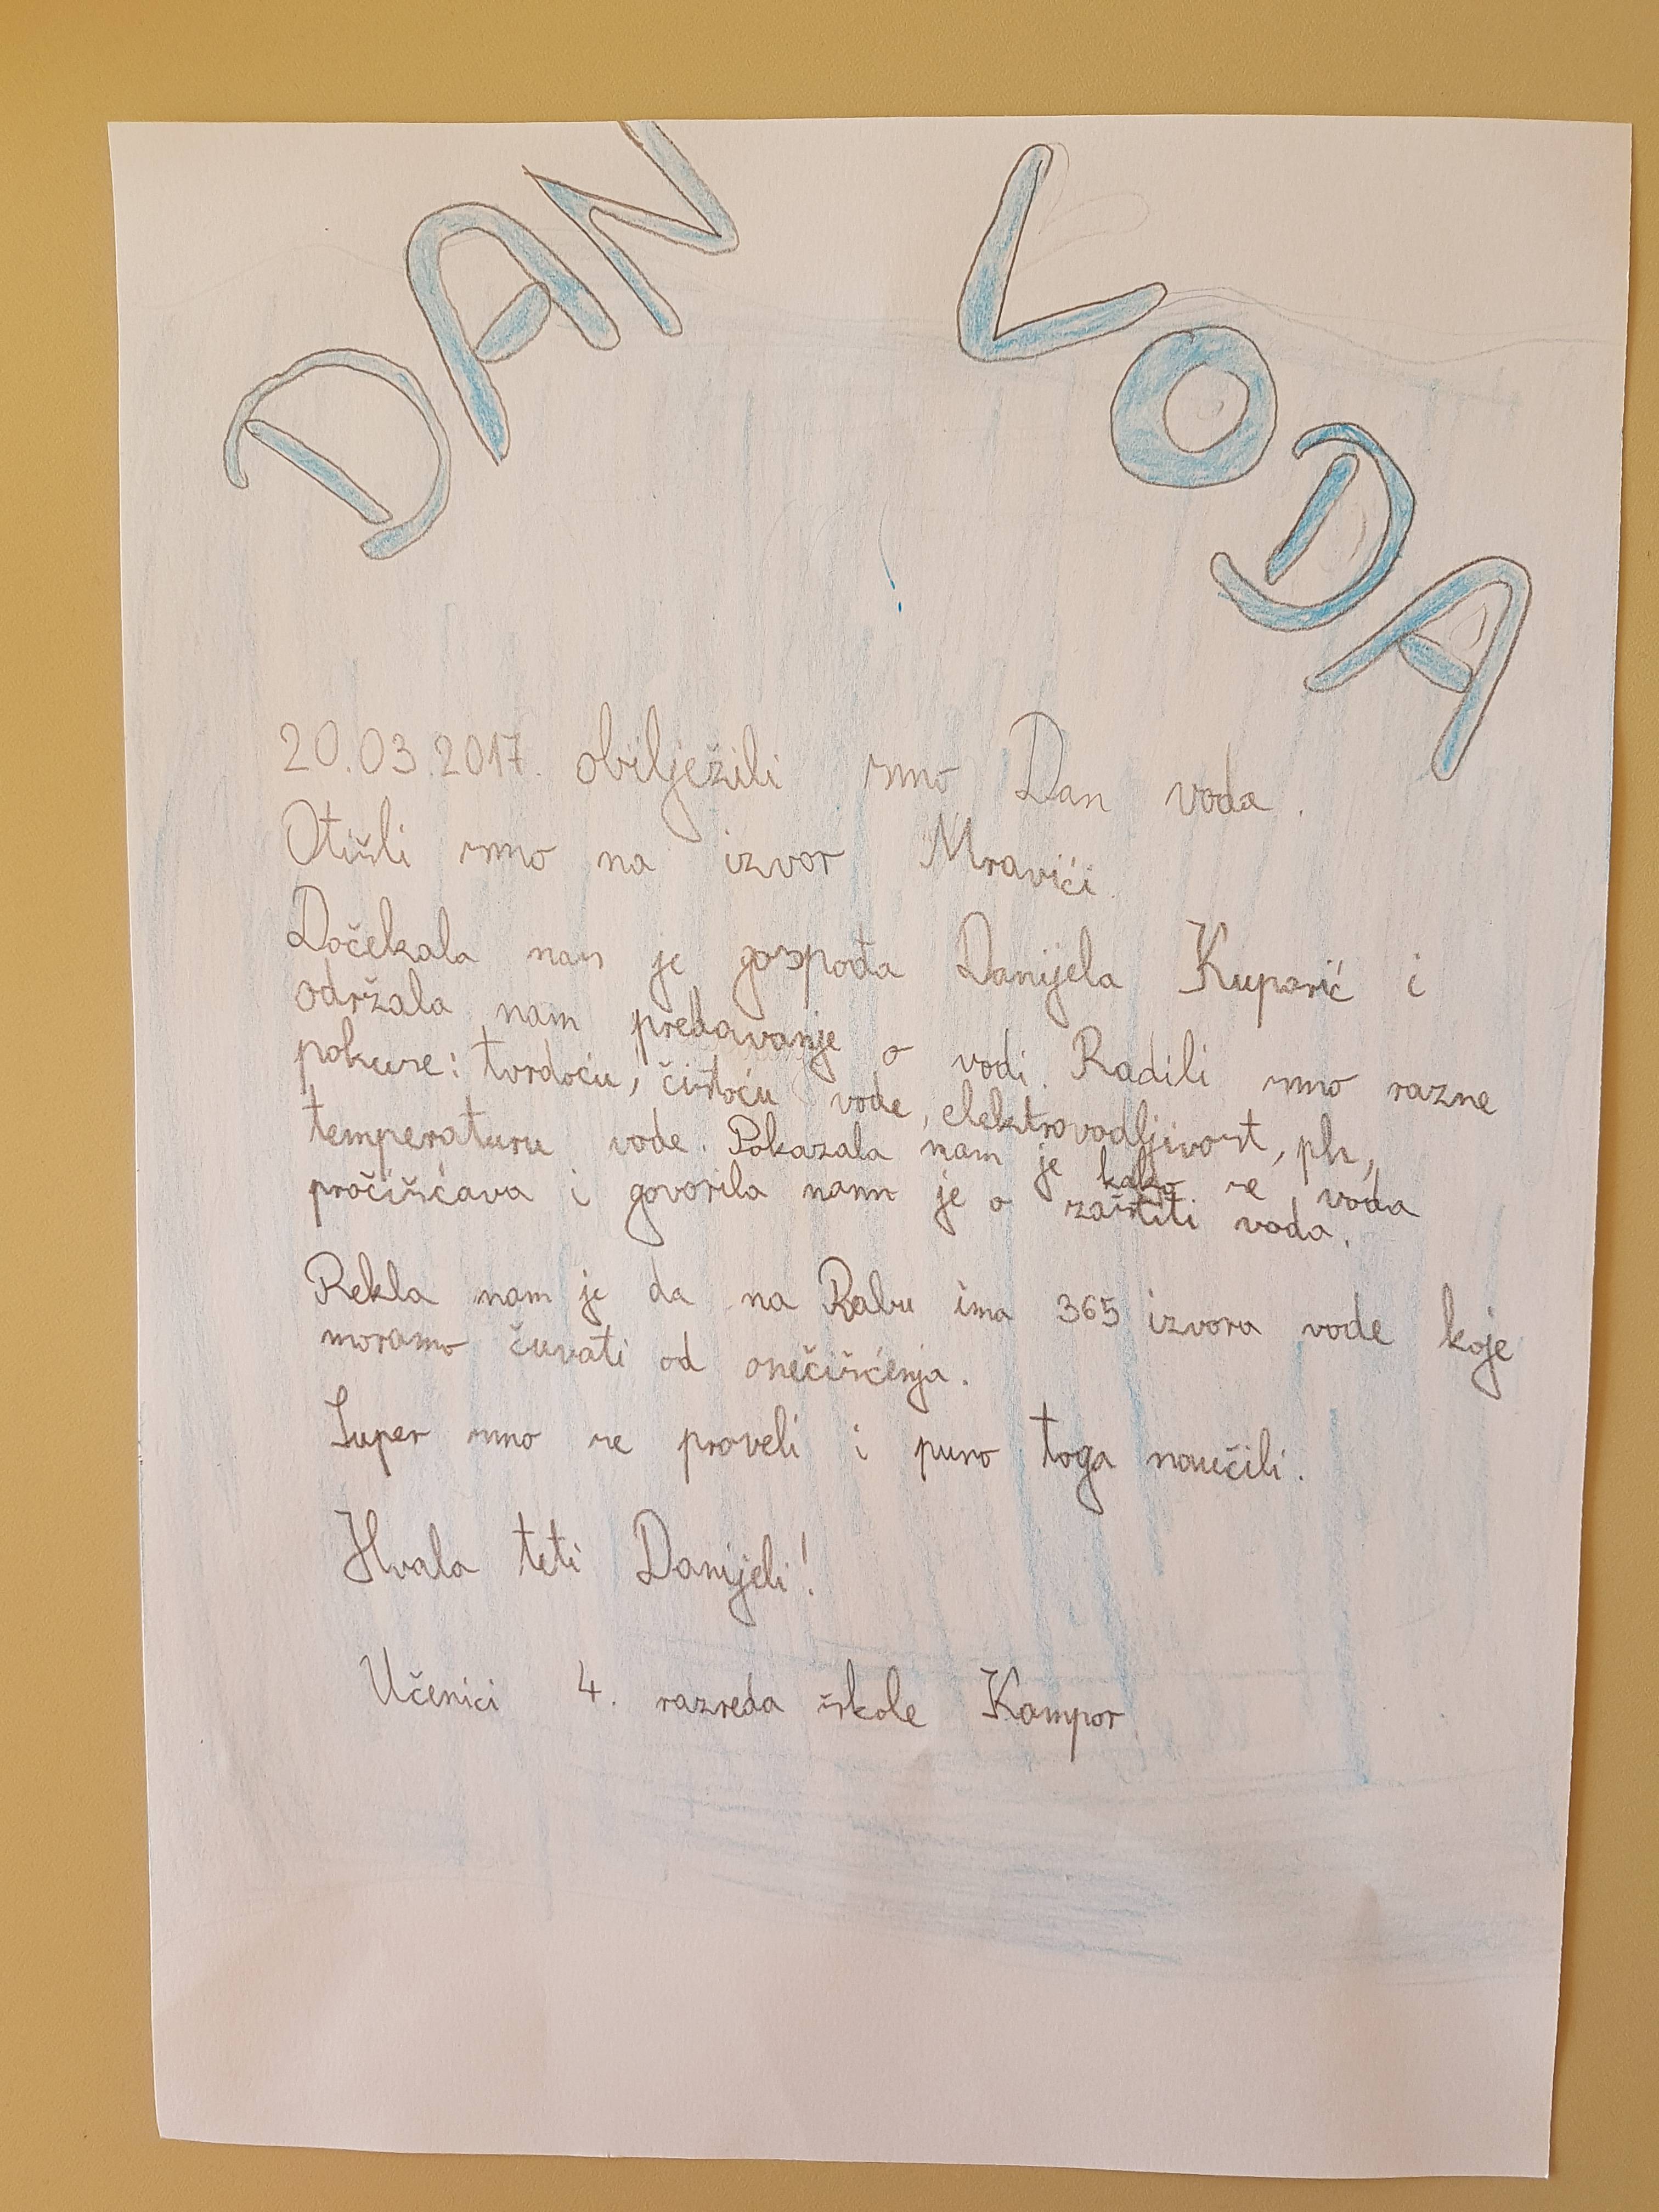 DAN VODA
20.03.2017. obilježili smo Dan voda.
Otišli smo na izvor Mravići.
Dočekala nas je gospođa Danijela Kuparić i
održala nam predavanje o vodi. Radili smo razne
pokuse: tvrdoću, čistoću vode, elektrovodljivost, ph,
temperaturu vode. Pokazala nam je kako se voda
pročišćava i govorila nam je o zaštiti voda.
Rekla nam je da na Rabu ima 365 izvora vode koje
moramo čuvati od onečišćenja.
Super smo se proveli i puno toga naučili.
Hvala teti Danijeli!
Učenici 4. razreda škole Kampor